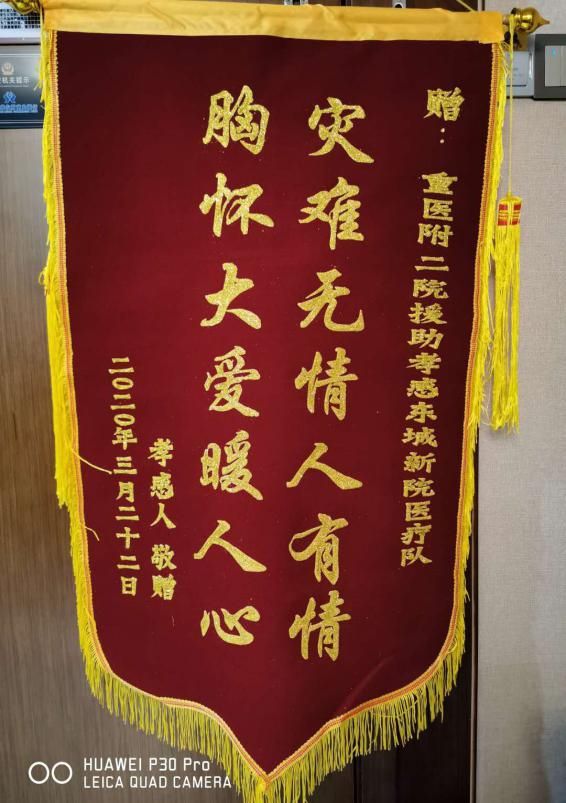 赠：重医附二院援助孝感东城新院医疗队
灾难无情人有情
胸怀大爱暖人心
孝感人 敬赠
二〇二〇年三月二十二日
HUAWEI P30 Pro
LEICA QUAD CAMERA